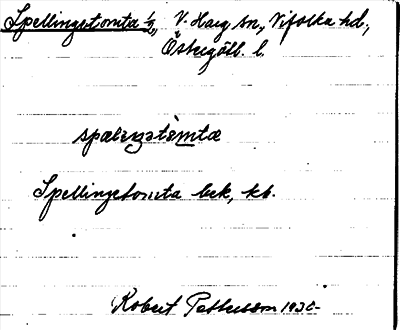 Spellingstomta ½, V. Harg sn., Vifolka hd.,
Östergötl. l.
spæleŋstòmta
Spellingstomta bek, kb.
Robert Pettersson 1930